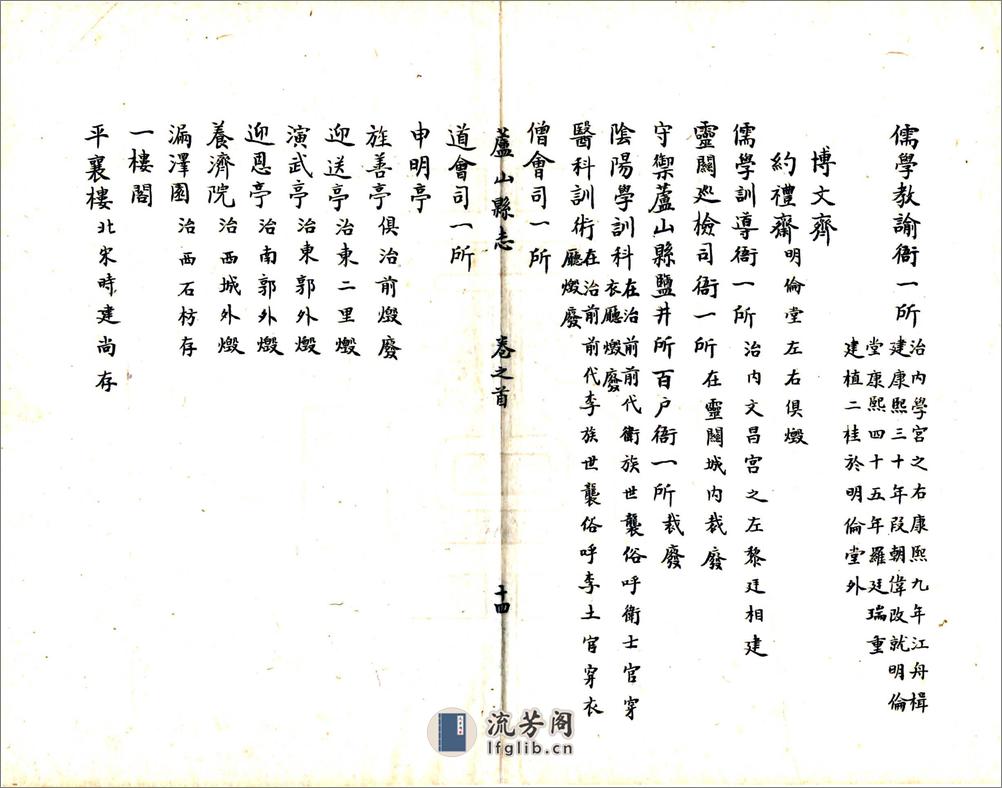 儒學教諭衙一所治內學宮之右康熙九年江舟楫
建康熙三十年段朝偉改就明倫
堂康熙四十五年羅廷瑞重
建植二桂於明倫堂外
博文齋
約禮齋明倫堂左右俱燬
儒學訓導衙一所治內文昌宮之左黎廷相建
靈關巡檢司衙一所在靈關城內裁廢
守禦蘆山縣鹽井所百户衙一所裁廢
陰陽學訓科在治前前代衛族世襲俗呼衛士官穿
衣廳燬廢
醫科訓術在治前前代李族世襲俗呼李土官穿衣
廳燬廢
僧會司一所
蘆山縣志 卷之首 十四
道會司一所
申明亭
旌善亭俱治前燬廢
迎送亭治東二里燬
演武亭治東郭外燬
迎恩亭治南郭外燬
養濟院治西城外燬
漏澤園治西石枋存
一樓閣
平襄樓北宋時建尚存
流芳阁
lfglib.cn